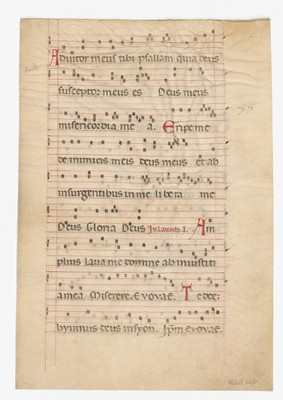 Adiutor meus tibi psallam quia deus
susceptor meus es Deus meus
misericordia me a. Eripe me
de inimicis meis deus meus et ab
insurgentibus in me libera me
Deus Gloria Deus In Laudib' A. Am
plius lava me domine ab iniusti
a mea Miserere. Evovae. Te dece:
hymnus deus in syon. Ip̄m Evovae.